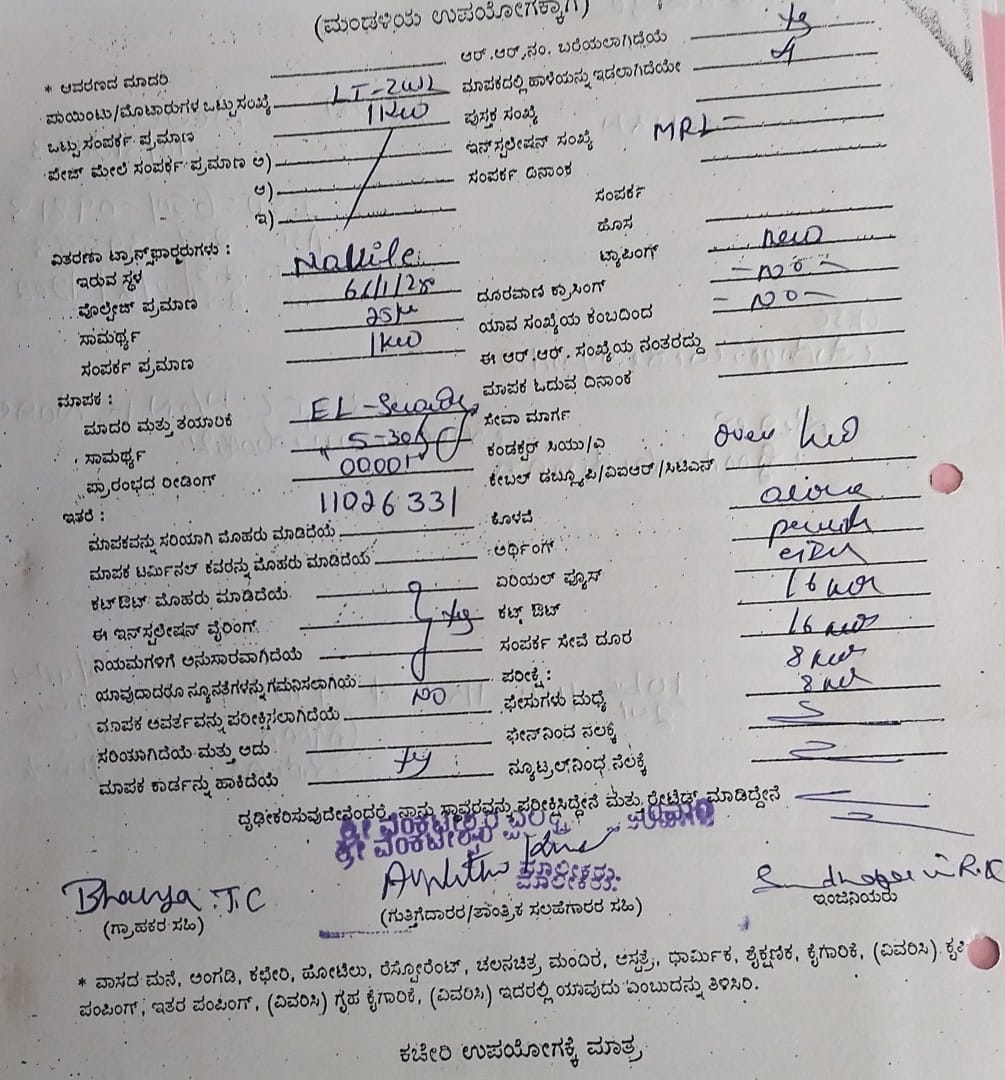 (ಮಂಡಳಿಯ ಉಪಯೋಗಕ್ಕಾಗಿ)
* ಆವರಣದ ಮಾದರಿ
ಆರ್.ಆರ್.ನಂ. ಬರೆಯಲಾಗಿದೆಯೆ
ಪಾಯಿಂಟು/ಮೋಟಾರುಗಳ ಒಟ್ಟುಸಂಖ್ಯೆ LT-2W2
ಮಾಪಕದಲ್ಲಿ ಹಾಳೆಯನ್ನು ಇಡಲಾಗಿದೆಯೇ
ಒಟ್ಟು ಸಂಪರ್ಕ ಪ್ರಮಾಣ 1KW
ಪುಸ್ತಕ ಸಂಖ್ಯೆ
ಪೇಜ್ ಮೇಲೆ ಸಂಪರ್ಕ ಪ್ರಮಾಣ ಅ)
ಇನ್‌ಸ್ಟಲೇಷನ್ ಸಂಖ್ಯೆ MRL-
ಆ)
ಸಂಪರ್ಕ ದಿನಾಂಕ
ಇ)
ಸಂಪರ್ಕ
ಹೊಸ
ವಿತರಣಾ ಟ್ರಾನ್ಸ್‌ಫಾರ್ಮರುಗಳು :
ಟ್ಯಾಪಿಂಗ್ new
ಇರುವ ಸ್ಥಳ
ದೂರವಾಣಿ ಕ್ರಾಸಿಂಗ್ - NO -
ವೋಲ್ಟೇಜ್ ಪ್ರಮಾಣ
ಯಾವ ಸಂಖ್ಯೆಯ ಕಂಬದಿಂದ - NO -
ಸಾಮರ್ಥ್ಯ
ಈ ಆರ್.ಆರ್. ಸಂಖ್ಯೆಯ ನಂತರದ್ದು
ಸಂಪರ್ಕ ಪ್ರಮಾಣ 1KW
ಮಾಪಕ ಓದುವ ದಿನಾಂಕ
ಮಾಪಕ :
ಮಾದರಿ ಮತ್ತು ತಯಾರಿಕೆ
ಸೇವಾ ಮಾರ್ಗ
ಸಾಮರ್ಥ್ಯ 5-30A
ಕಂಡಕ್ಟರ್ ಸಿಯು/ಎ
ಪ್ರಾರಂಭದ ರೀಡಿಂಗ್ 00001
ಕೇಬಲ್ ಡಬ್ಲ್ಯೂಪಿ/ವಿಐಆರ್/ಸಿಟಿಎಸ್
ಇತರೆ : 11026331
ಕೊಳವೆ
ಮಾಪಕವನ್ನು ಸರಿಯಾಗಿ ಮೊಹರು ಮಾಡಿದೆಯೆ
ಅರ್ಥಿಂಗ್
ಮಾಪಕ ಟರ್ಮಿನಲ್ ಕವರನ್ನು ಮೊಹರು ಮಾಡಿದೆಯೆ
ಏರಿಯಲ್ ಫ್ಯೂಸ್
ಕಟ್‌ಔಟ್ ಮೊಹರು ಮಾಡಿದೆಯೆ
ಕಟ್ ಔಟ್
ಈ ಇನ್‌ಸ್ಟಲೇಷನ್ ವೈರಿಂಗ್
ಸಂಪರ್ಕ ಸೇವೆ ದೂರ
ನಿಯಮಗಳಿಗೆ ಅನುಸಾರವಾಗಿದೆಯೆ
ಪರೀಕ್ಷೆ :
ಯಾವುದಾದರೂ ನ್ಯೂನತೆಗಳನ್ನು ಗಮನಿಸಲಾಗಿಯೆ NO
ಫೇಸುಗಳು ಮಧ್ಯೆ
ಮಾಪಕ ಆವರ್ತವನ್ನು ಪರೀಕ್ಷಿಸಲಾಗಿದೆಯೆ
ಫೇಸ್‌ನಿಂದ ನೆಲಕ್ಕೆ
ಸರಿಯಾಗಿದೆಯೆ ಮತ್ತು ಅದು
ನ್ಯೂಟ್ರಲ್‌ನಿಂಧ ನೆಲಕ್ಕೆ
ಮಾಪಕ ಕಾರ್ಡನ್ನು ಹಾಕಿದೆಯೆ
ದೃಢೀಕರಿಸುವುದೇನಂದರೆ, ನಾನು ಸ್ಥಾವರವನ್ನು ಪರೀಕ್ಷಿಸಿದ್ದೇನೆ ಮತ್ತು ರೇಟೆಡ್ ಮಾಡಿದ್ದೇನೆ
ಶ್ರೀ ವೆಂಕಟೇಶ್ವರ
ಮಾಲೀಕರು.
Bhavya .T.C
(ಗ್ರಾಹಕರ ಸಹಿ)
(ಗುತ್ತಿಗೆದಾರರ/ತಾಂತ್ರಿಕ ಸಲಹೆಗಾರರ ಸಹಿ)
ಇಂಜಿನಿಯರು
* ವಾಸದ ಮನೆ, ಅಂಗಡಿ, ಕಛೇರಿ, ಹೋಟೆಲು, ರೆಸ್ಟೋರೆಂಟ್, ಚಲನಚಿತ್ರ ಮಂದಿರ, ಆಸ್ಪತ್ರೆ, ಧಾರ್ಮಿಕ, ಶೈಕ್ಷಣಿಕ, ಕೈಗಾರಿಕೆ, (ವಿವರಿಸಿ) ಕೃಷಿ
ಪಂಪಿಂಗ್, ಇತರ ಪಂಪಿಂಗ್, (ವಿವರಿಸಿ) ಗೃಹ ಕೈಗಾರಿಕೆ, (ವಿವರಿಸಿ) ಇದರಲ್ಲಿ ಯಾವುದು ಎಂಬುದನ್ನು ತಿಳಿಸಿರಿ.
ಕಚೇರಿ ಉಪಯೋಗಕ್ಕೆ ಮಾತ್ರ